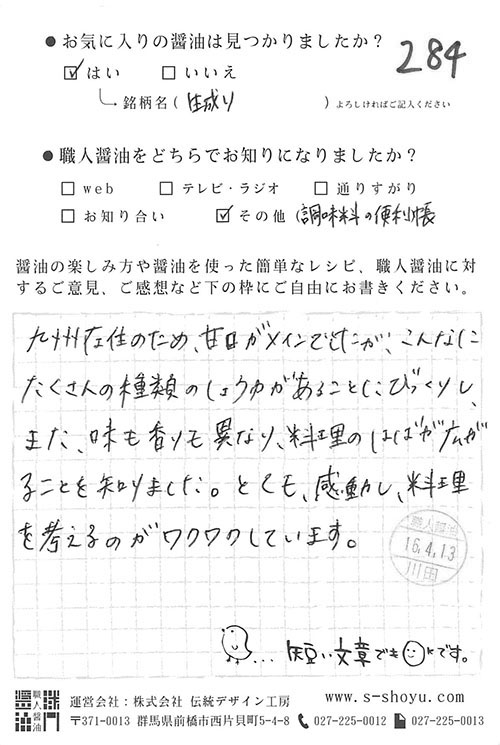 ●お気に入りの醤油は見つかりましたか？ 284
☑はい □いいえ
銘柄名( 生成り )よろしければご記入ください
●職人醤油をどちらでお知りになりましたか？
□web □テレビ・ラジオ □通りすがり
□お知り合い ☑その他 (調味料の便利帳
醤油の楽しみ方や醤油を使った簡単なレシピ、職人醤油に対
するご意見、ご感想など下の枠にご自由にお書きください。
九州在住のため、甘口がメインでしたが、こんなに
たくさんの種類のしょうゆがあることにびっくりし、
また、味も香りも異なり、料理のはばが広が
ることを知りました。とても、感動し、料理
を考えるのがワクワクしています。
職人醤油
16.4.13
川田
... 短い文章でもOKです。
職人醤油
運営会社：株式会社 伝統デザイン工房 www.s-shoyu.com
〒371-0013 群馬県前橋市西片貝町5-4-8 027-225-0012 027-225-0013